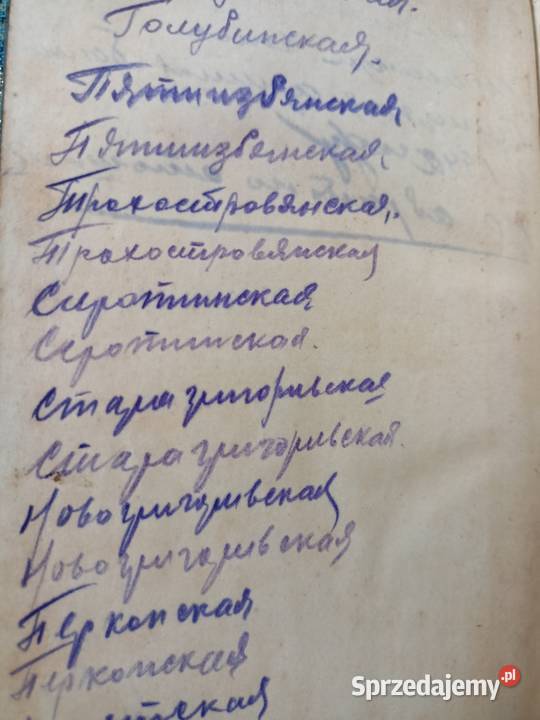 Голубинская.
Пятиизбянская
Пятиизбянская
Трохостровянская.
Трохостровянская
Сиротинская
Сиротинская.
Старагригоривская
Старагригоривская.
Новогригоривская
Новогригоривская
Перкопская
Перкопская
Sprzedajemy.pl